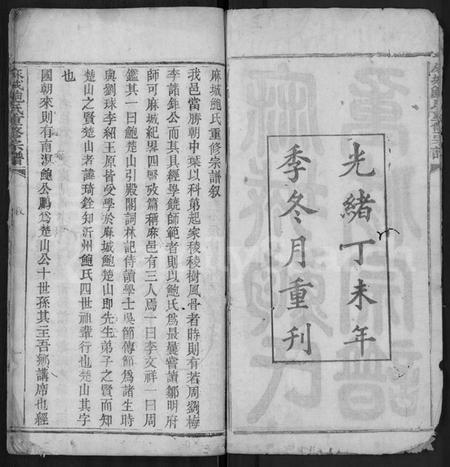 光緒丁未年
季冬月重刊
麻城鮑氏重修宗譜叙
我邑當勝朝中葉以科第起家稜稜樹風骨者時則有若周劉梅
李諸鉅公而其具經學饒師範者則以鮑氏為最嘗讀鄒明府
師可麻城紀界四賢攷篇稱麻邑有三人焉一曰李文祥一曰周
鑑其一曰鮑楚山引殿閣詞林記侍讀學士吳節傳節為諸生時
與劉球李紹王原皆受學於麻城鮑楚山即先生弟子之賢而知
楚山之賢楚山者諱琦銓知沂州鮑氏四世頑輩行也楚山其字
也
國朝來則有南溟鮑公鵬為楚山公十世孫其主吾鄉講席也經
麻城鮑氏重修宗譜